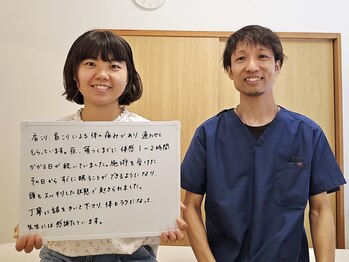 肩こり、首こりによる体の痛みがあり、通わせて
もらっています。夜、寝つくまでに体感1〜2時間
かかる日が続いていました。施術を受けた
その日からすぐに眠ることができるようになり、
頭もスッキリした状態で起きられました。
丁寧に話をきいて下さり、体もラクになって、
先生には感謝しています。